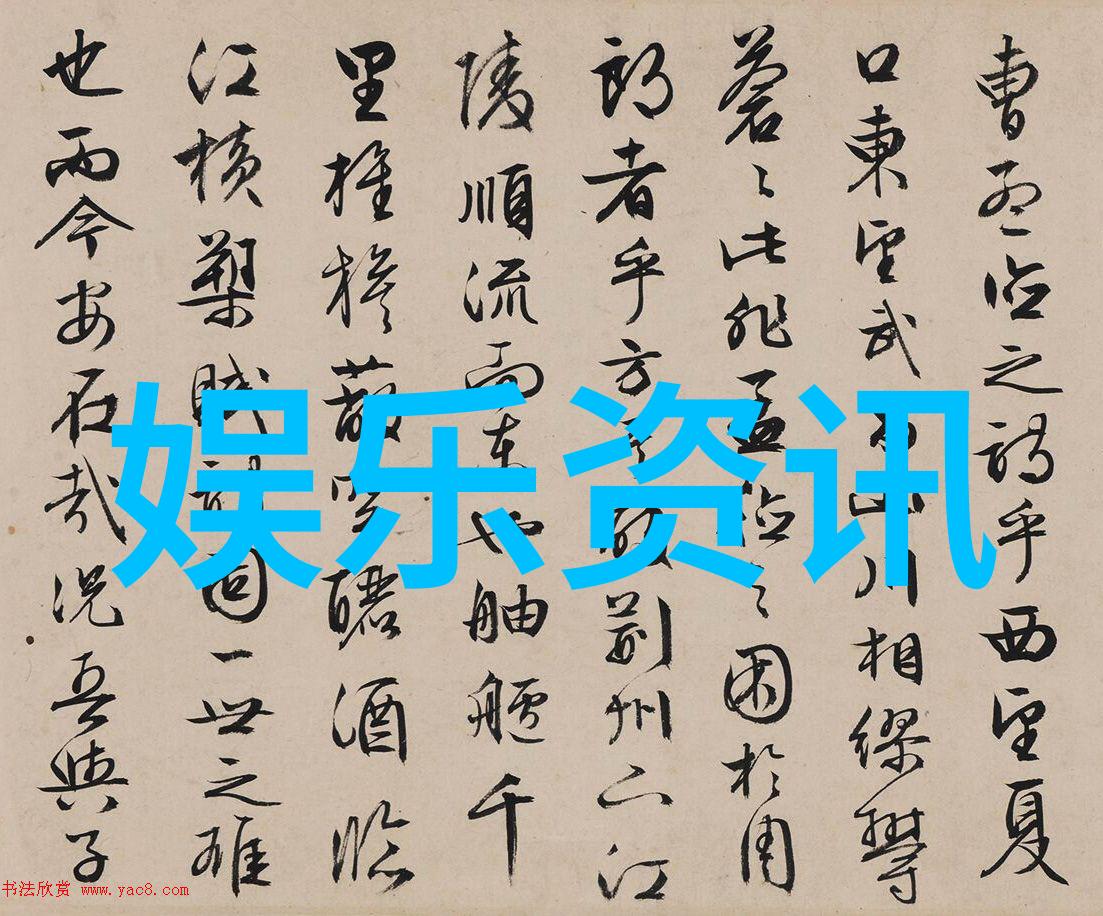 曹孟德之詩乎西望夏
口東望武昌山川相繆鬱
蒼〻此非孟德〻困於周
郎者乎方其破荊州下江
陵順流而東也舳艫千
里旌旗蔽空釃酒臨
江橫槊賦詩固一世之雄
也而今安在哉況吾與子
娱乐资讯
书法欣赏 www.yac8.com